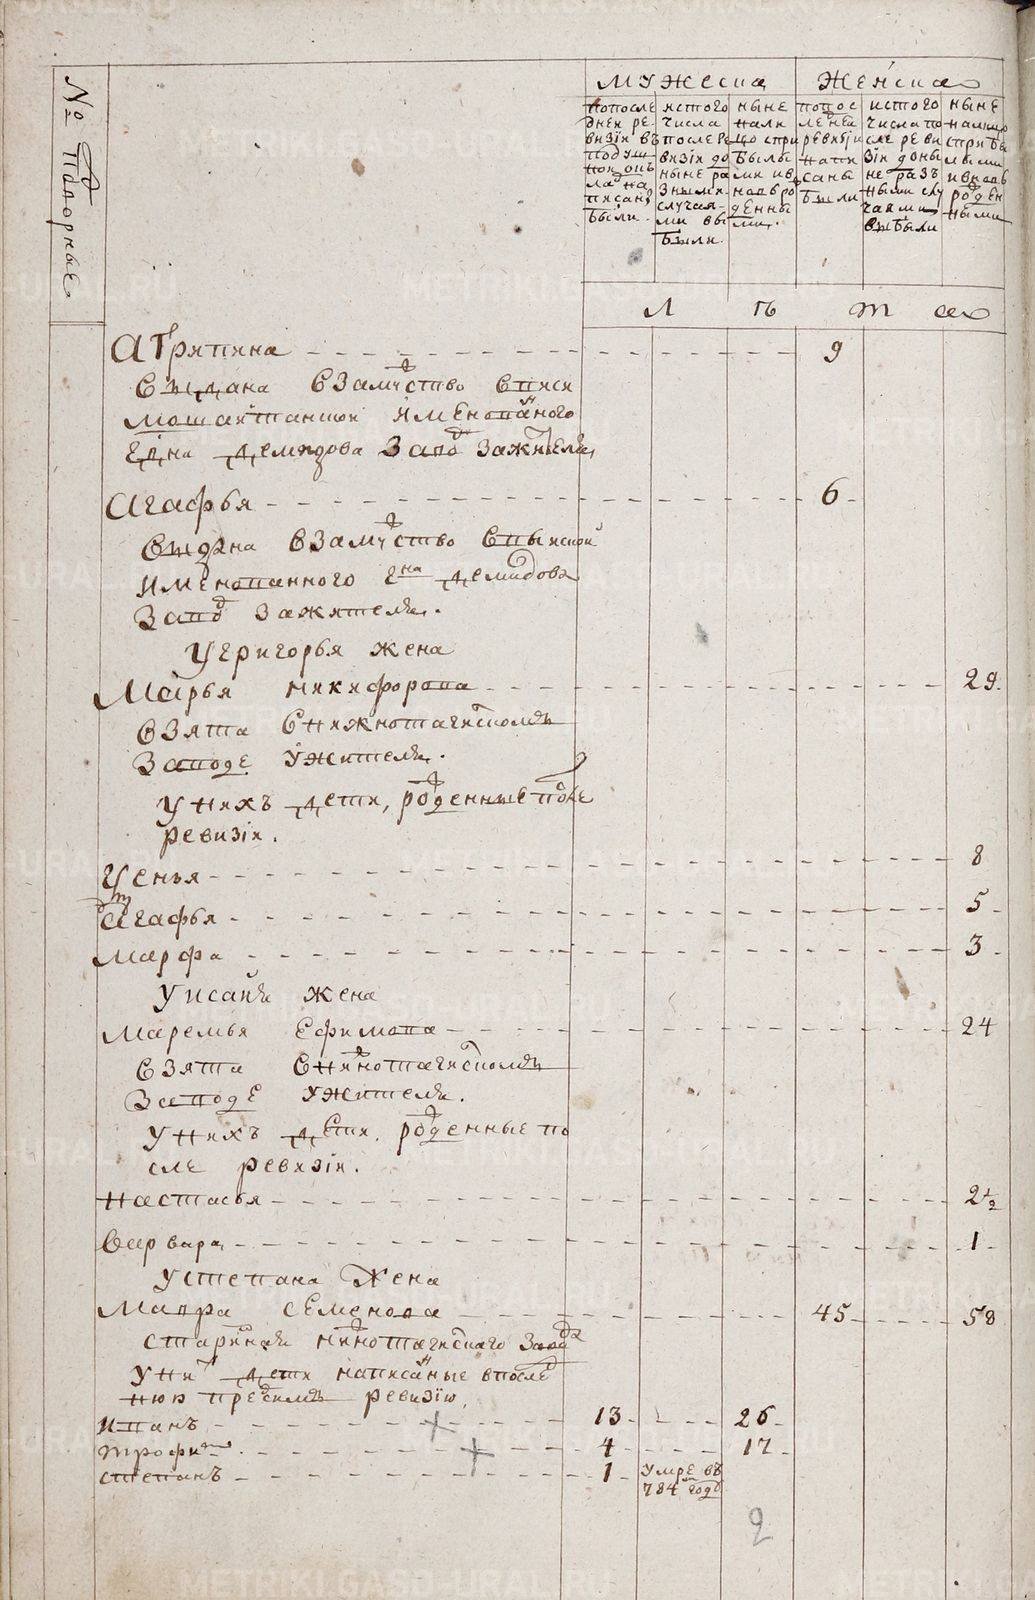 № Подворные
мужеска
женска
по послѣ
дней ре
визiи въ
подуш
ной окъ
ладъ на
писаны
были.
ис того
числа
после ре
визiи до
ныне ра
зными
случая
ми вы
были.
ныне
нали
цо спри
былы
ми и в
новь ро
жденны
ми.
по пос
ледней
ревизiи
напи
саны
были
ис того
числа по
сле реви
зiи до ны
не разъ
ными слу
чаями
выбыли
ныне
на лицо
с прибы
лыми
и вновь
рожден
ными
л ѣ т а
Агрипина 9
выдана в замужство в
именованного
Е: на Демидова завод за жителя
Агафья 6
выдана в замужство в
именованного Е:на Демидова
завод за жителя.
У Григорья жена
Марья Никифорова 29.
взята в Нижнотагилскомъ
заводе у жителя.
у них дети, рожденные после
ревизiи.
Ксенья 8
Агафья 5
Марфа 3
У Исая жена
Маремья Ефимова 24
взята в Нижнотагилскомъ
заводе у жителя.
у них дети, рожденные по
сле ревизiи.
Настасья 2 ½
Варвара 1
У Степана жена
Мавра Семенова 45 58
старинная Нижнотагилского завода
у них дети написанные в послед
нюю пред симъ ревизiю,
Иванъ 13 26
Трофим 4 17
Степанъ 1 умре въ
784 году
2
METRIKI.GASO-URAL.RU